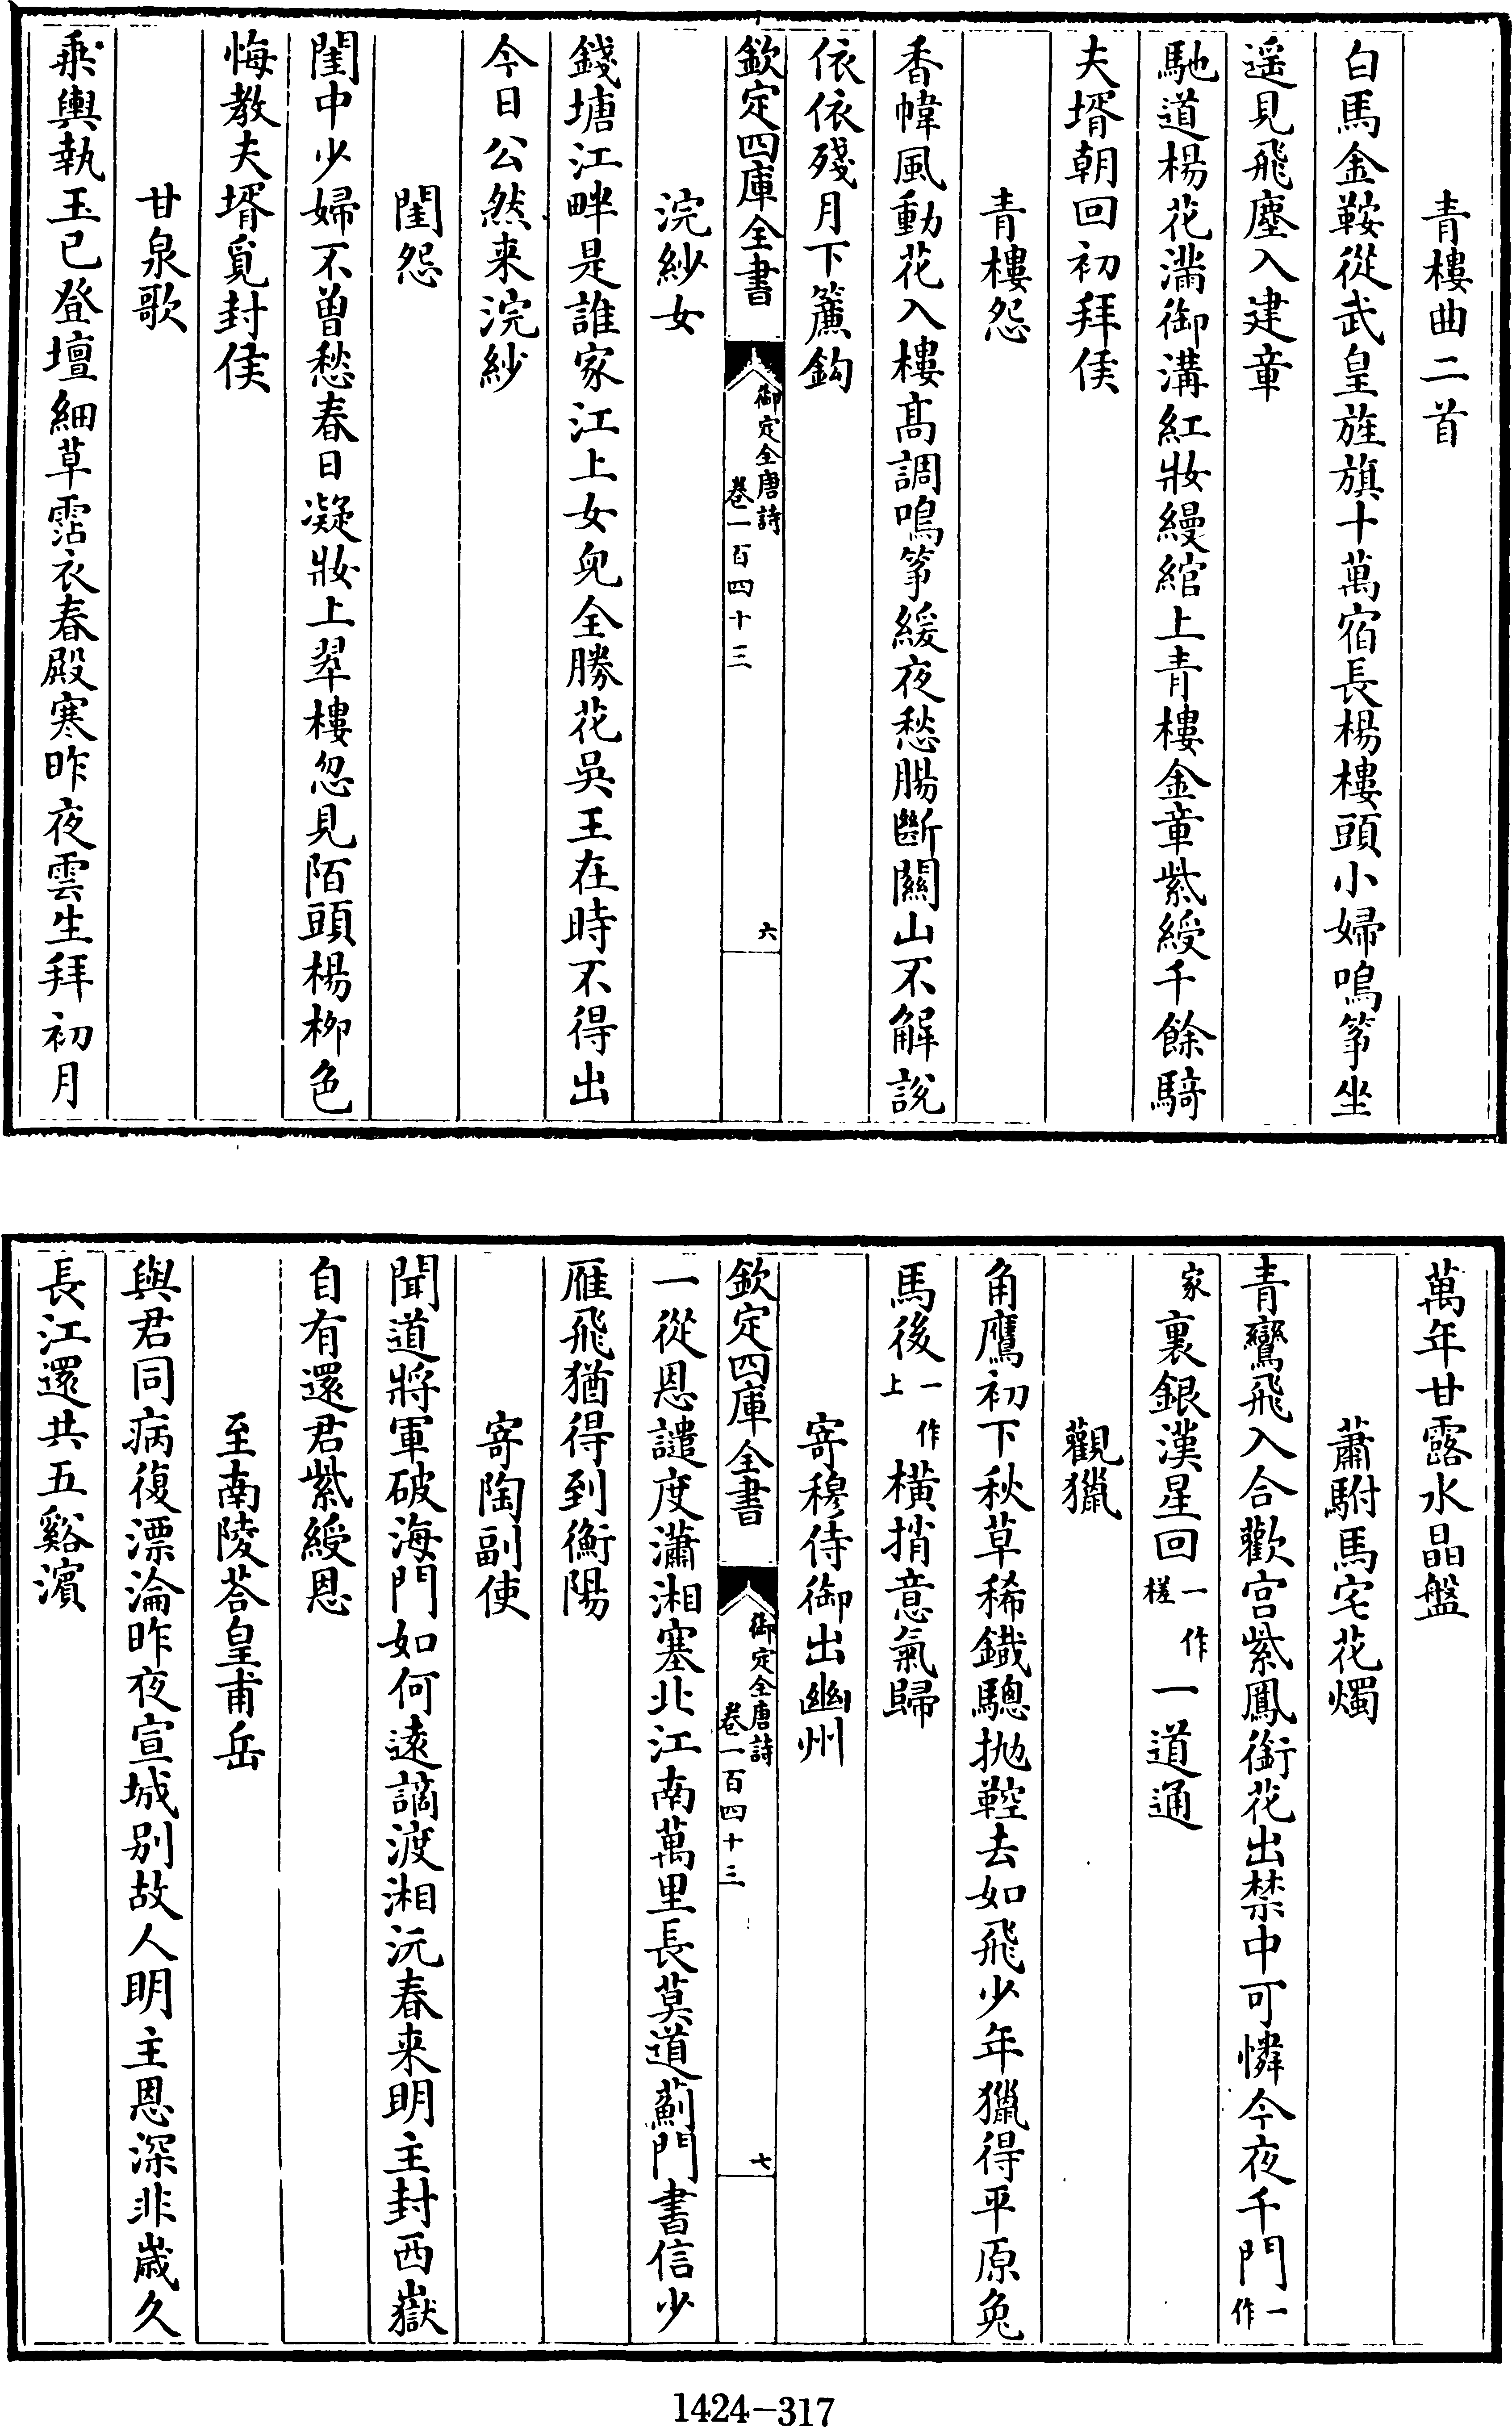 青樓曲二首
白馬金鞍從武皇旌旗十萬宿長楊樓頭小婦鳴筝坐
遥見飛塵入建章
馳道楊花滿御溝紅妝縵綰上青樓金章紫綬千餘騎
夫壻朝回初拜侯
青樓怨
香幃風動花入樓髙調鳴筝緩夜愁腸斷關山不解説
依依殘月下簾鈎
欽定四庫全書
御定全唐詩
卷一百四十三
六
浣紗女
錢塘江畔是誰家江上女兒全勝花吳王在時不得出
今日公然来浣紗
閨怨
閨中少婦不曽愁春日凝妝上翠樓忽見陌頭楊柳色
悔教夫壻覓封侯
甘泉歌
乘輿執玉已登壇細草霑衣春殿寒昨夜雲生拜初月
萬年甘露水晶盤
蕭駙馬宅花燭
青鸞飛入合歡宫紫鳳銜花出禁中可憐今夜千門一作
家裏銀漢星回一作槎一道通
觀獵
角鷹初下秋草稀鐵驄抛鞚去如飛少年獵得平原兔
馬後一作上横捎意氣歸
寄穆侍御出幽州
欽定四庫全書
御定全唐詩
卷一百四十三
七
一從恩譴度瀟湘塞北江南萬里長莫道薊門書信少
雁飛猶得到衡陽
寄陶副使
聞道將軍破海門如何逺謫渡湘沅春来明主封西嶽
自有還君紫綬恩
至南陵荅皇甫岳
與君同病復漂淪昨夜宣城别故人明主恩深非歳久
長江還共五谿濱
1424-317